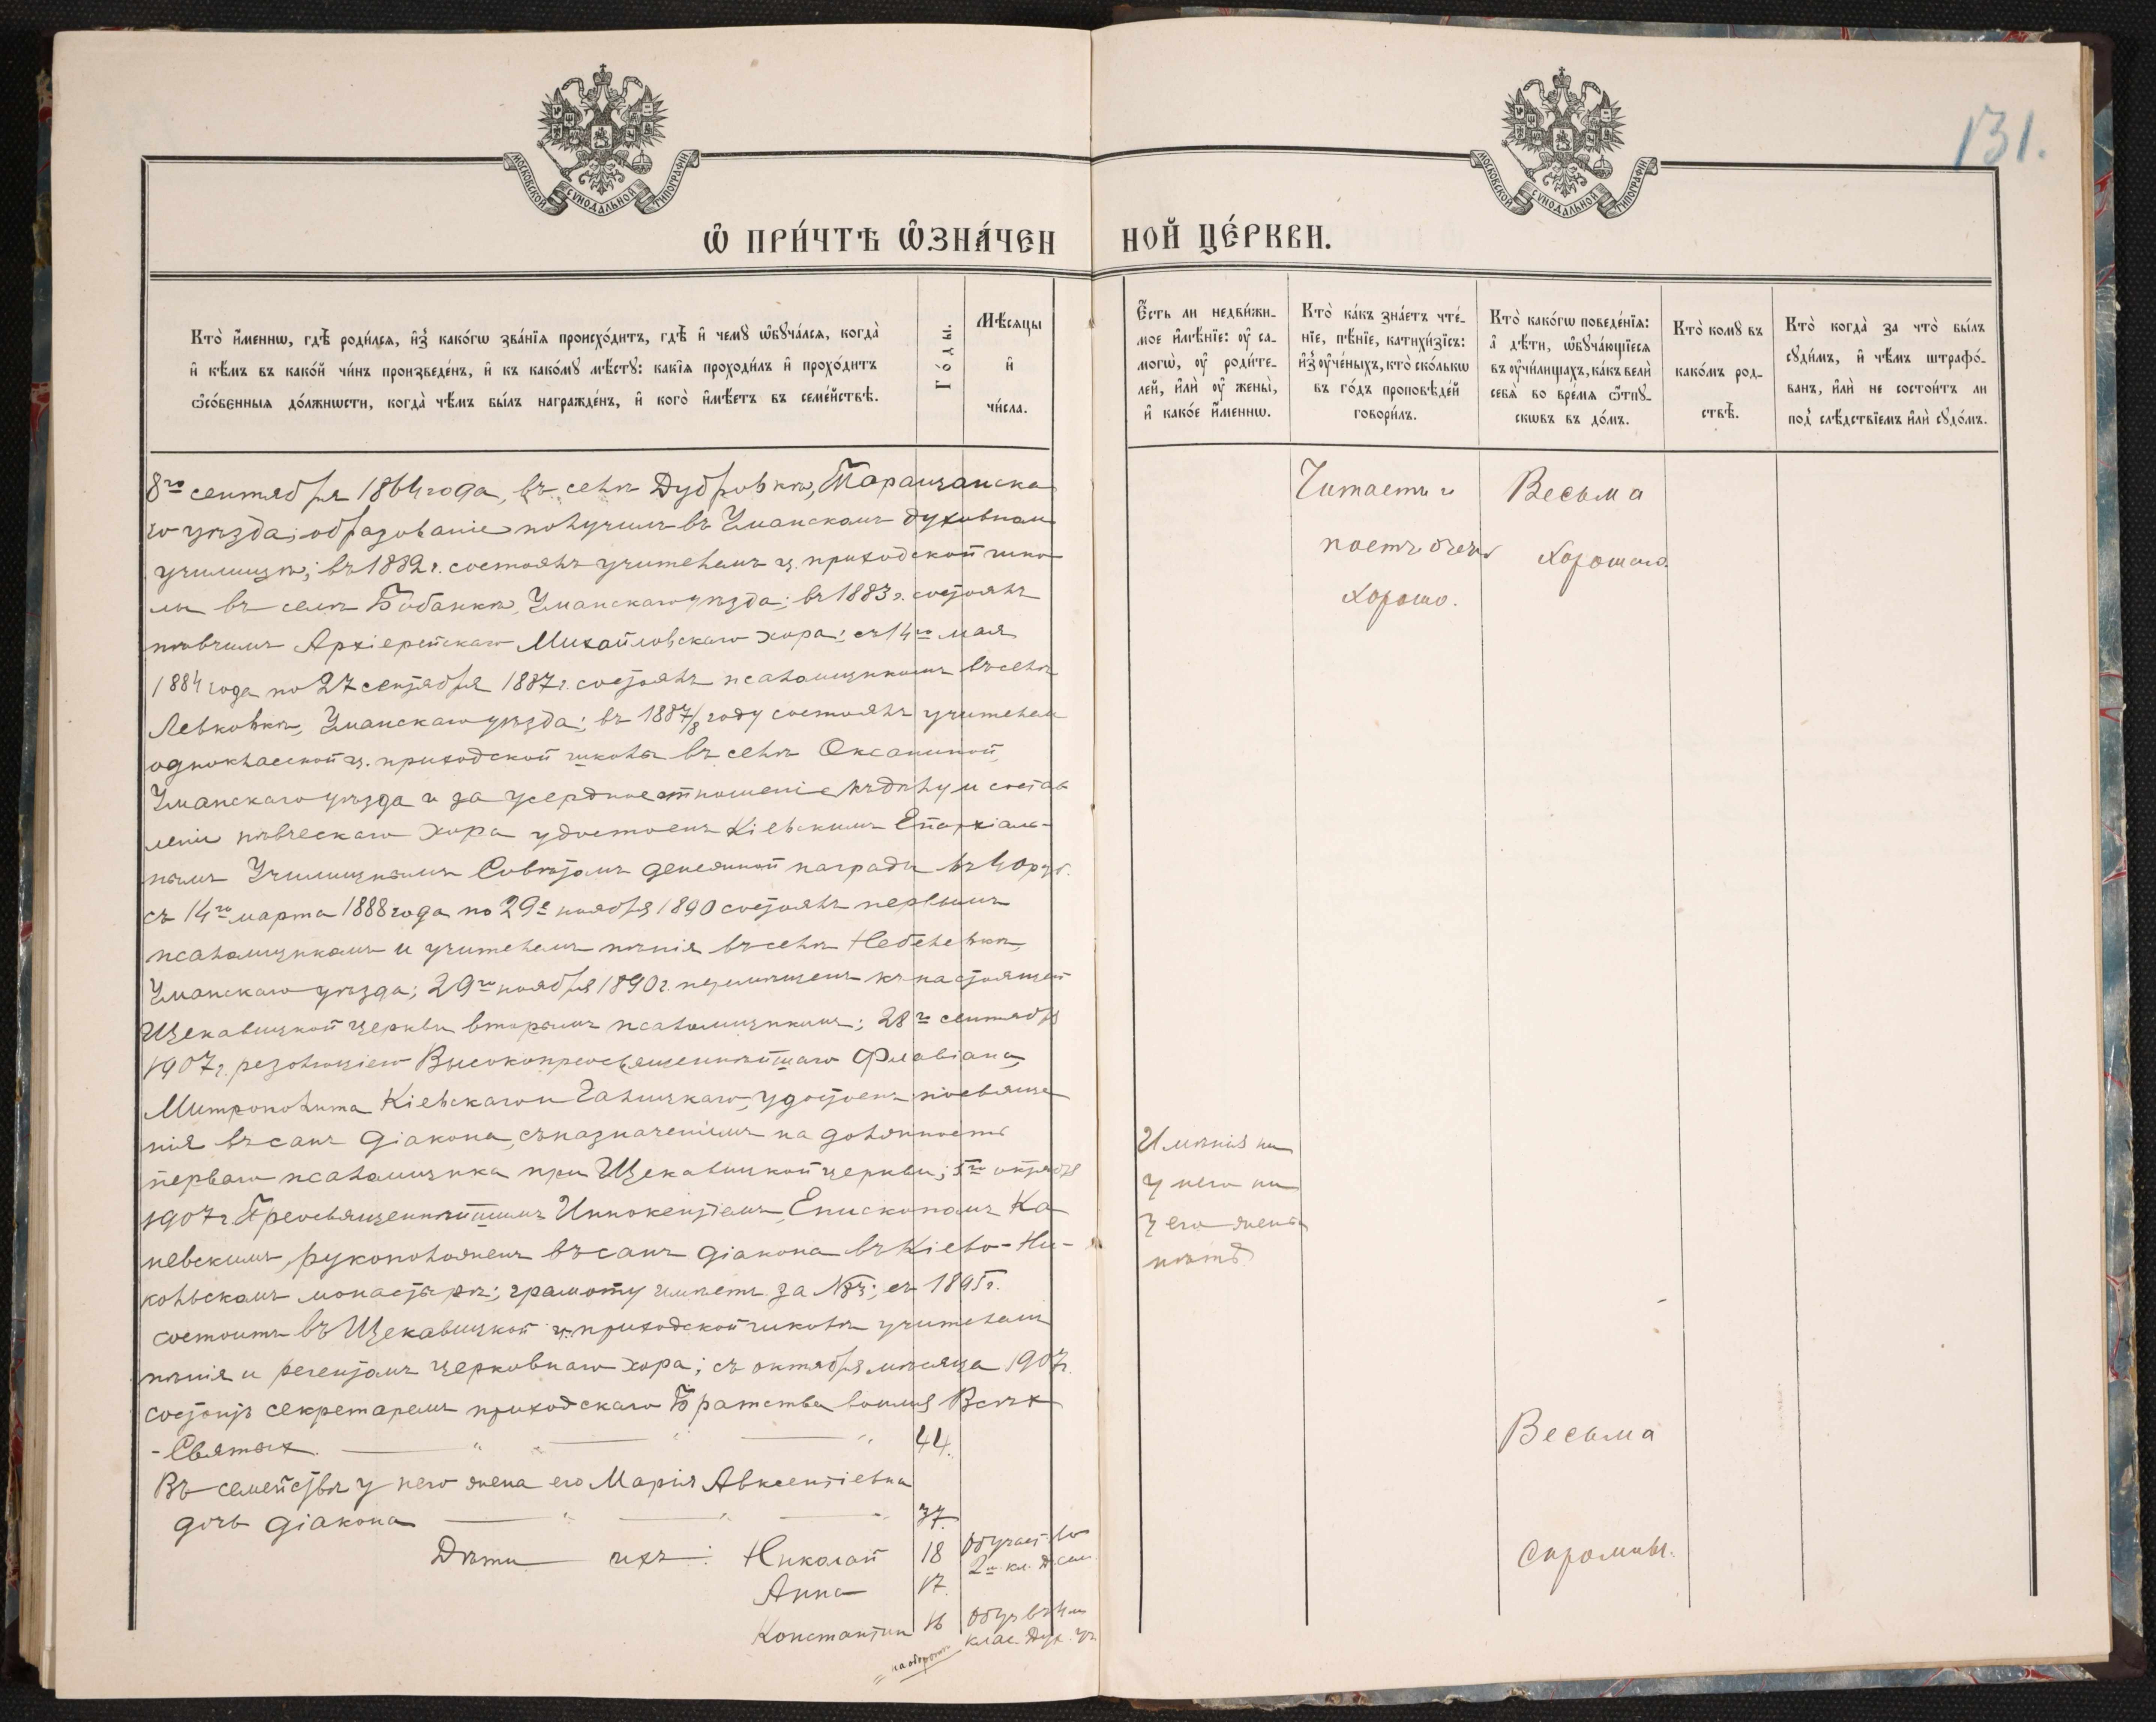 131.
МОСКОВСКОЙ СѴНОДАЛЬНОЙ ТИПОГРАФІИ
МОСКОВСКОЙ СѴНОДАЛЬНОЙ ТИПОГРАФІИ
Ѡ ПРИ́ЧТѢ Ѡ҆ЗНА́ЧЕННОЙ ЦЕ́РКВИ.
Кто̀ и҆́меннѡ, гдѣ̀ роди́лсѧ, и҆з̾ како́гѡ зва́нїѧ происхо́дитъ, гдѣ̀ и҆ чемꙋ̀ ѡ҆бꙋча́лсѧ, когда̀
и҆ кѣ́мъ въ како́й чи́нъ произведе́нъ, и҆ къ како́мꙋ мѣ́стꙋ: какі́ѧ проходи́лъ и҆ прохо́дитъ
ѻ҆со́бєнныѧ до́лжнѡсти, когда̀ чѣ́мъ бы́лъ награжде́нъ, и҆ кого̀ и҆мѣ́етъ въ семе́йствѣ.
Го́ды.
Мѣ́сѧцы
и҆
чи́сла.
Є҆́сть ли недви́жи-
мое и҆мѣ́нїе: ᲂу҆ са-
могѡ̀, ᲂу҆ роди́те-
лей, и҆лѝ ᲂу҆ жены̀,
и҆ како́е и҆́менно.
Кто̀ ка́къ зна́етъ чте́-
нїе, пѣ́нїе, катихи́зїсъ:
и҆з̾ ᲂу҆че́ныхъ, кто̀ ско́лькѡ
въ го́дъ проповѣ́дей
говори́лъ.
Кто̀ како́гѡ поведе́нїѧ:
а҆ дѣ́ти, ѡ҆бꙋча́ющїесѧ
въ ᲂу҆чи́лищахъ, ка́къ велѝ
себѧ̀ во вре́мѧ ѿпꙋ-
скѡвъ въ до́мъ.
Кто̀ комꙋ̀ въ
како́мъ род-
ствѣ̀.
Кто̀ когда̀ за что̀ бы́лъ
сꙋди́мъ, и҆ чѣ́мъ штрафо́-
ванъ, и҆лѝ не состои́тъ ли
под̾ слѣ́дствїемъ и҆лѝ сꙋдо́мъ.
8го сентября 1864 года, въ селѣ Дубровкѣ, Таращанска
го уѣзда; образованіе получилъ въ Уманскомъ духовном
училищѣ; въ 1882 г. состоялъ учителемъ ц. приходской шко
лы въ селѣ Бабанкѣ, Уманскаго уѣзда; въ 1883 г. состоялъ
пѣвчимъ Архіерейскаго Михайловскаго хора; съ 14го мая
1884 года по 27 сентября 1887 г. состоялъ псаломщикомъ въ селѣ
Левковкѣ, Уманскаго уѣзда; въ 1887/8 году состоялъ учителем
одноклассной ц. приходской школы въ селѣ Оксаниной,
Уманскаго уѣзда и за усердное отношеніе къ дѣлу и состав
леніи пѣвческаго хора удостоенъ Кіевскимъ Епархіаль-
нымъ Училищнымъ Совѣтомъ денежной награды въ 40 руб.
съ 14го марта 1888 года по 29е ноября 1890 состоялъ первымъ
псаломщикомъ и учителемъ пѣнія въ селѣ Небелевкѣ,
Уманскаго уѣзда; 29го ноября 1890 г. перемѣщенъ къ настоящей
Щекавицкой церкви вторымъ псаломщикомъ; 28го сентября
1907 г. резолюціею Высокопреосвященнѣйшаго Флавіана,
Митрополита Кіевскаго и Галицкаго, удостоенъ посвяще
нія въ санъ діакона, съ назначеніемъ на должность
перваго псаломщика при Щекавицкой церкви; 5го октября
1907 г. Преосвященнѣйшимъ Иннокентіемъ, Епископомъ Ка
невскимъ, рукоположенъ въ санъ діакона въ Кіево-Ни-
кольскомъ монастырѣ; грамоту имѣетъ за №; съ 1895 г.
состоитъ въ Щекавицкой ц. приходской школѣ учителемъ
пѣнія и регентомъ церковнаго хора; съ октября мѣсяца 1907 г.
состоитъ секретаремъ приходскаго Братства во имя Всѣх
-Святых. 44.
Въ семействѣ у него жена его Марія Авксентіевна
дочь діакона 37.
Дѣти ихъ: Николай 18 Обучает. во
2м кл. Д. сем.
Анна 17.
Константин 16 Обуч. въ 4м
клас. Дух. уч.
на оборотѣ
Имѣнія ни
у него ни
у его жены
нѣтъ.
Читаетъ и
поетъ очень
хорошо.
Весьма
хорошаго.
Весьма
скромны.